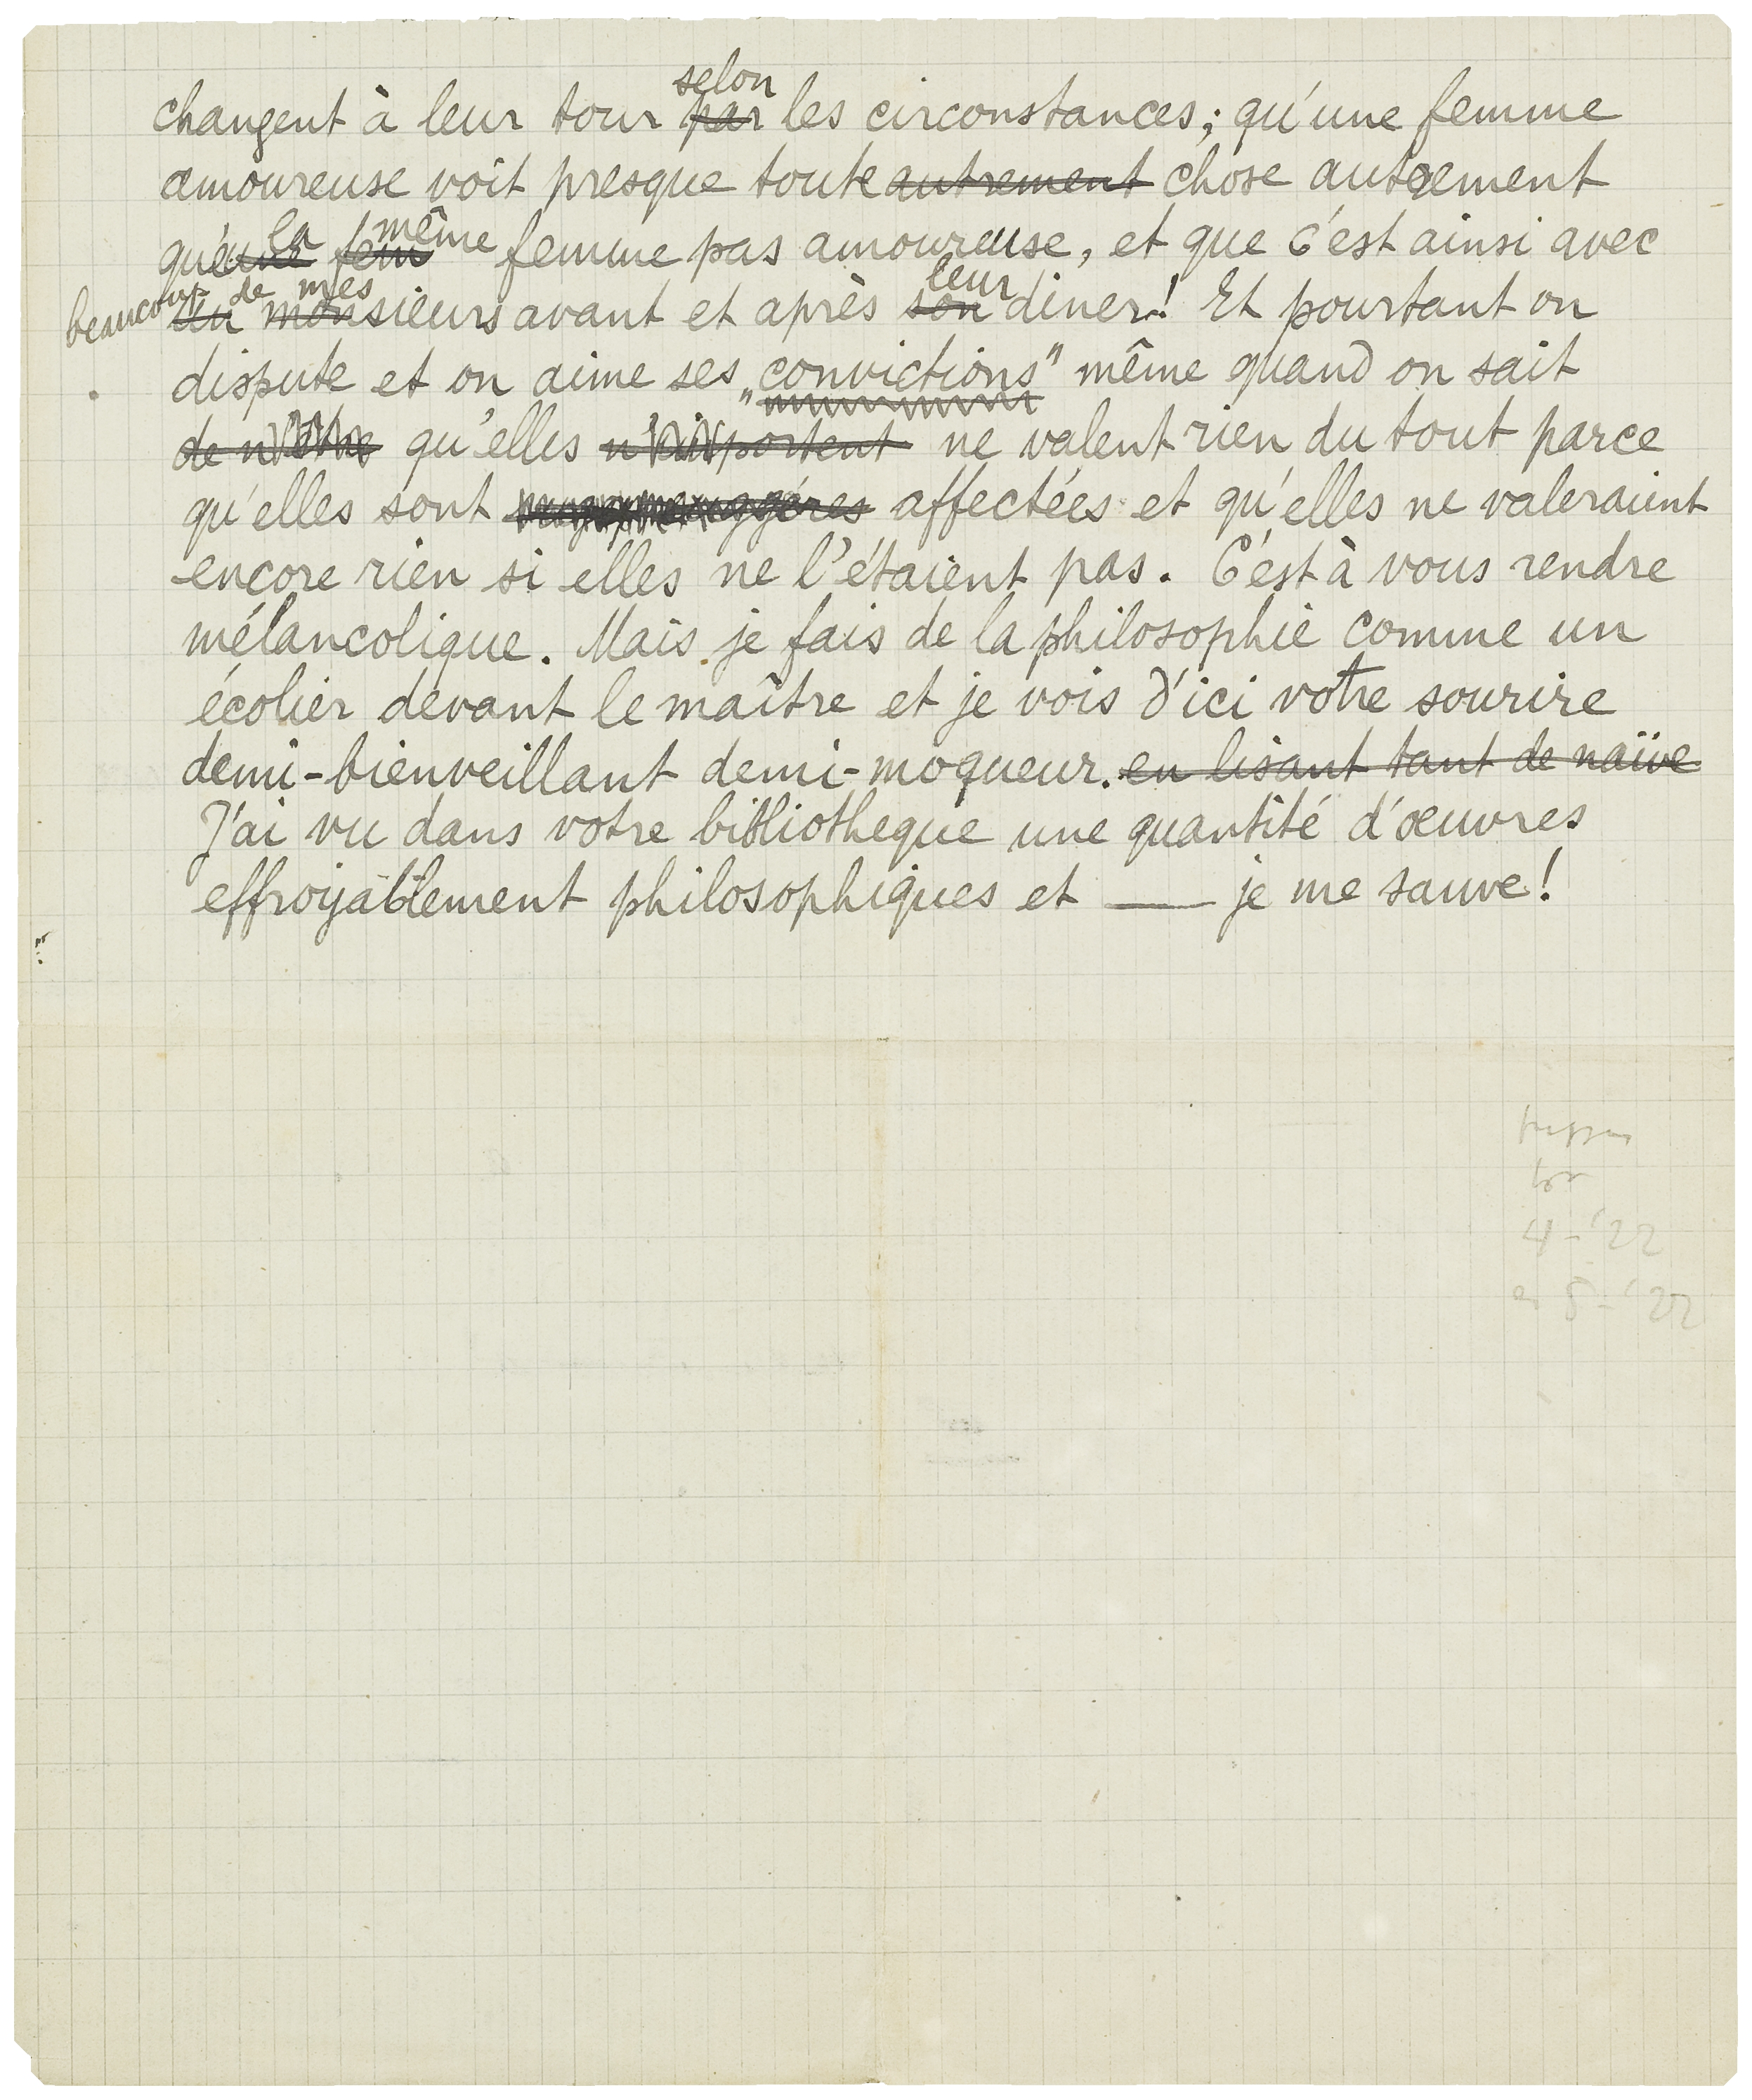 changent à leur tour par selon les circonstances; qu'une femme
amoureuse voit presque toute autrement chose autrement
que une la fem même femme pas amoureuse, et que c'est ainsi avec
beaucoup de mes un monsieurs avant et après son leur diner! Et pourtant on
dispute et on aime ses „convictions" même quand on sait
de n'être qu'elles n'importent ne valent rien du tout parce
qu'elles sont affectées et qu'elles ne valeraient
encore rien si elles ne l'étaient pas. C'est à vous rendre
mélancolique. Mais je fais de la philosophie comme un
écolier devant le maître et je vois d'ici votre sourire
demi-bienveillant demi-moqueur. en lisant tant de naïve
J'ai vu dans votre bibliotheque une quantité d'œuvres
effroyablement philosophiques et — je me sauve!
4-'22
5-'22